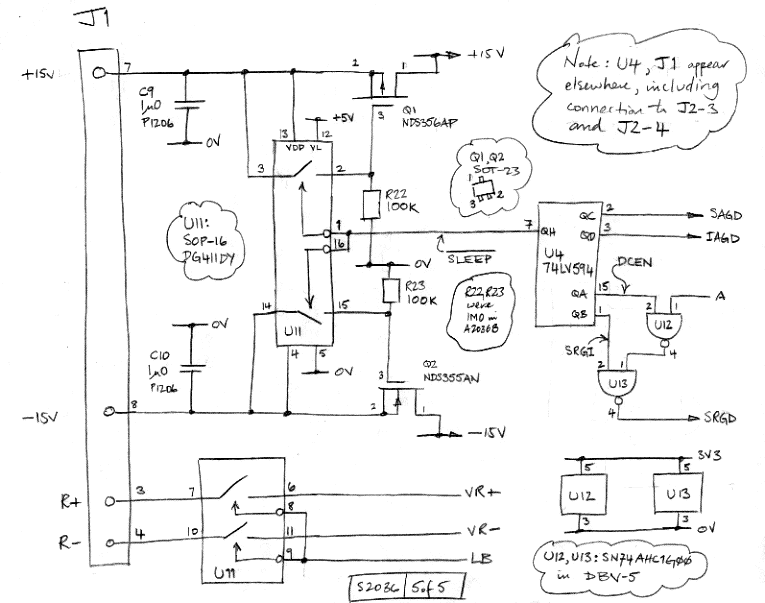 J1
7
+15V
C9
1μ0
P1206
0V
2
1
+15V
Q1
3
NDS356AP
+5V
13
12
VDD VL
3
2
R22
100K
U11:
SOP-16
DG411DY
9
16
SLEEP
7
0V
R23
100K
14
15
U11
4
5
0V
0V
C10
1μ0
P1206
8
-15V
Q2
NDS355AN
3
2
1
-15V
Note: U4, J1 appear
elsewhere, including
connection to J2-3
and J2-4
Q1, Q2
SOT-23
1
3
2
R22,R23
were
1M0 in
A2036B
QH
U4
74LV594
QC
2
SAGD
QD
3
IAGD
DCEN
QA
15
2
1
A
U12
4
QB
1
SRGI
2
1
U13
4
SRGD
R+
3
7
6
VR+
8
R-
4
10
11
VR-
9
LB
U11
3V3
5
5
U12
U13
3
3
0V
U12, U13: SN74AHC1G00
in DBV-5
S2036
5 of 5